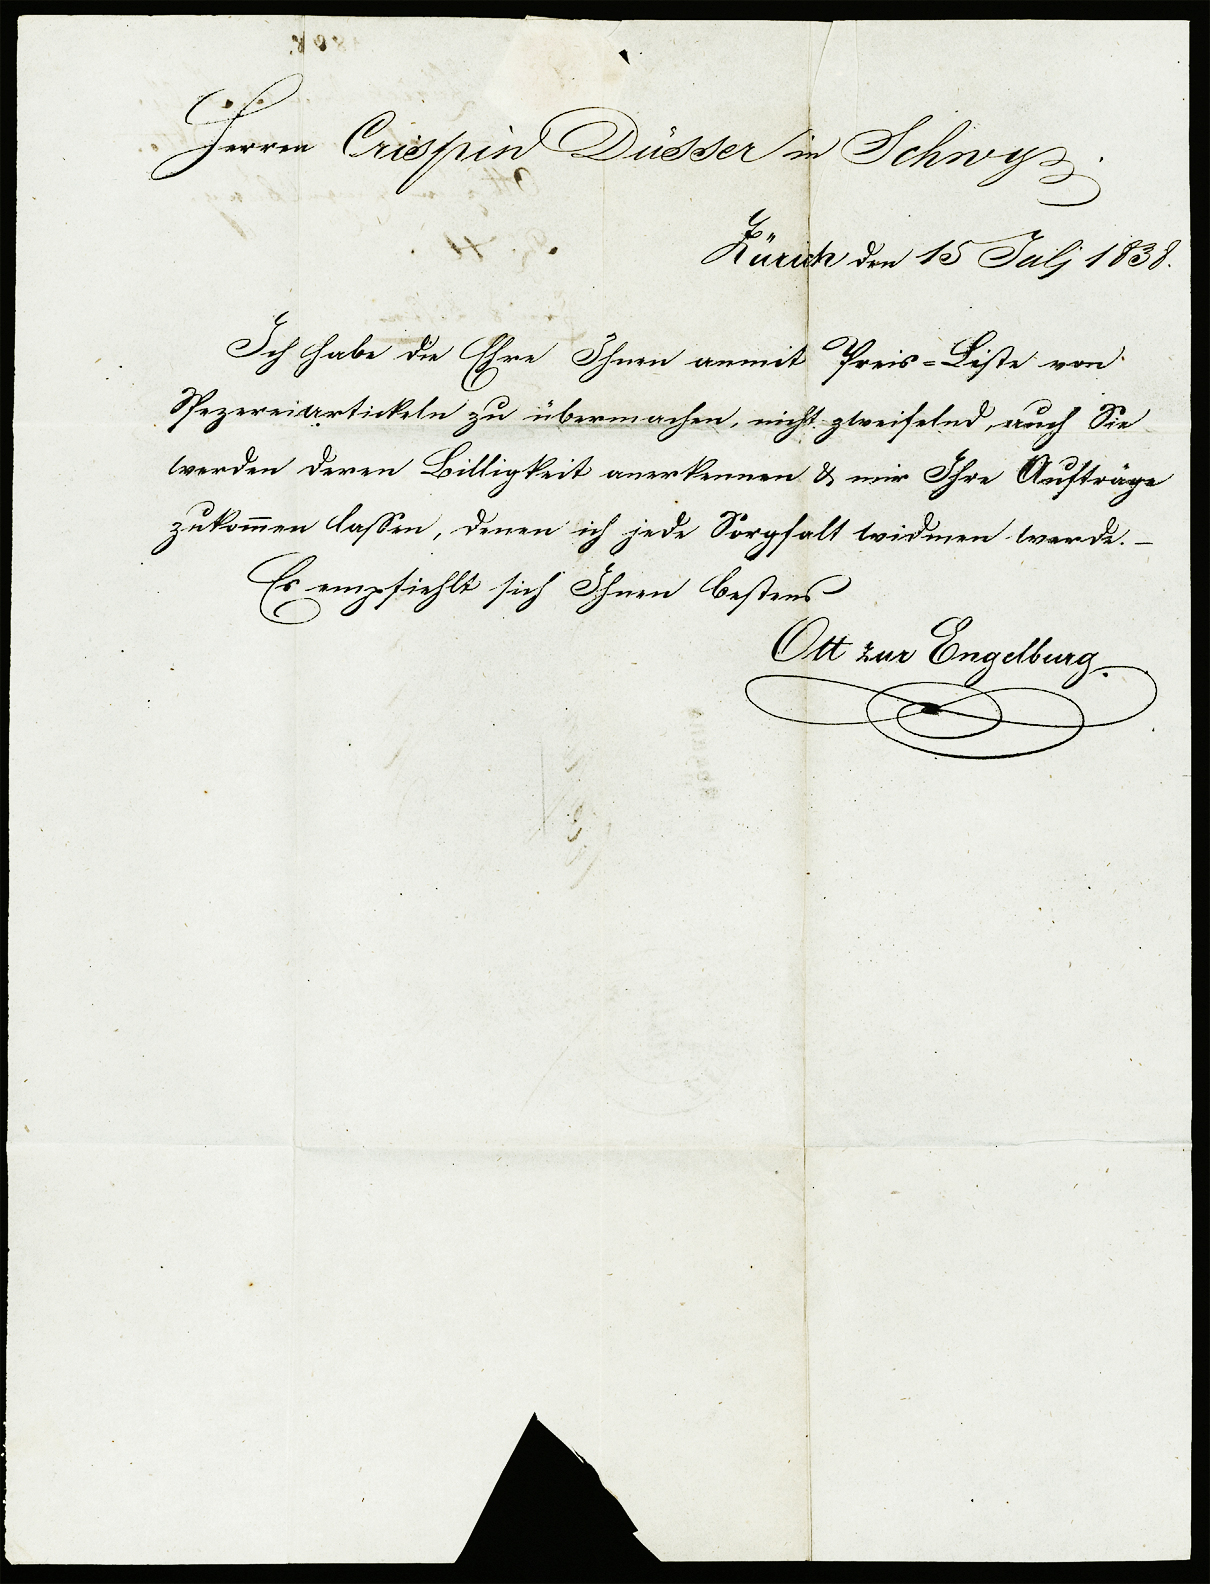 Herren Crispin Düsser in Schwyz.
Zürich den 15 Julj 1838.
Ich habe die Ehre Ihnen anmit Preis=Liste von
Spezereiartickeln zu übermachen, nicht zweifelnd, auch Sie
werden deren Billigkeit anerkennen & mir Ihre Aufträge
zukom̄en lassen, denen ich jede Sorgfalt widmen werde. –
Es empfiehlt sich Ihnen bestens
Ott zur Engelburg.